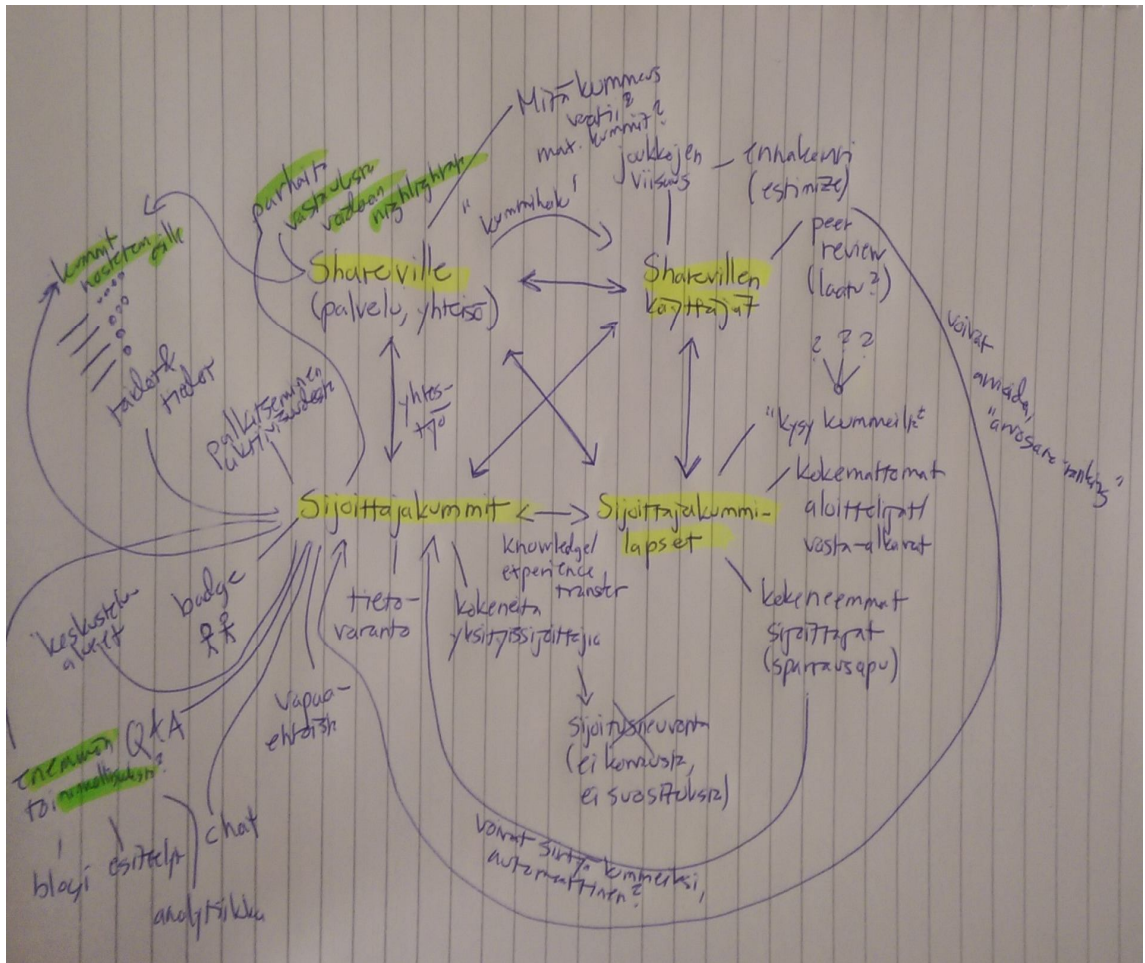 Mitä kummeus
vaatii?
max. kummit?
joukkojen
viisaus
ennakointi
(estimize)
parhaita
vastauksia
voidaan
highlightata
"kummihaku"
peer
review
(laatu?)
kummit
nostetaan
esille
Shareville
(palvelu, yhteisö)
Sharevillen
käyttäjät
voivat
arvioida,
"arvosana-ranking"
? ? ?
taidot &
tiedot
palkitseminen
aktiivisuudesta
yhteis-
työ
"kysy kummeilta"
kokemattomat
aloittelijat/
vasta-alkavat
Sijoittajakummit
Sijoittajakummi-
lapset
knowledge/
experience
transfer
keskustelu-
alueet
badge
tieto-
varanto
kokeneita
yksityissijoittajia
kokeneemmat
sijoittajat
(sparrausapu)
vapaa-
ehtoisia
Q&A
enemmän
toiminnallisuuksia?
Sijoitusneuvonta
(ei korvausta,
ei suosituksia)
chat
blogi
esittelyt
analytiikka
voivat siirtyä kummeiksi,
automaattinen?